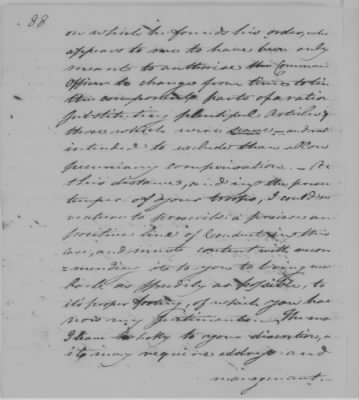 88
on which he founds his order, who
appears to me to have been only
meant to authorise the Comman
Officer to change from time to tim
the component parts of a ration
substituting plentiful Articles f
those which were scarce — and not
intended to exclude them allow
pecuniary compensation. — At
this distance, and in the prese
temper of your troops, I could no
venture to prescribe a precise an
positive line of conduct in this
case, and must content with recom
=mending it to you to bring ma
back as speedily as possible, to
its proper footing, of which you hav
now my Sentiments. The ma
I leave wholly to your discretion, a
it may require address and
management.